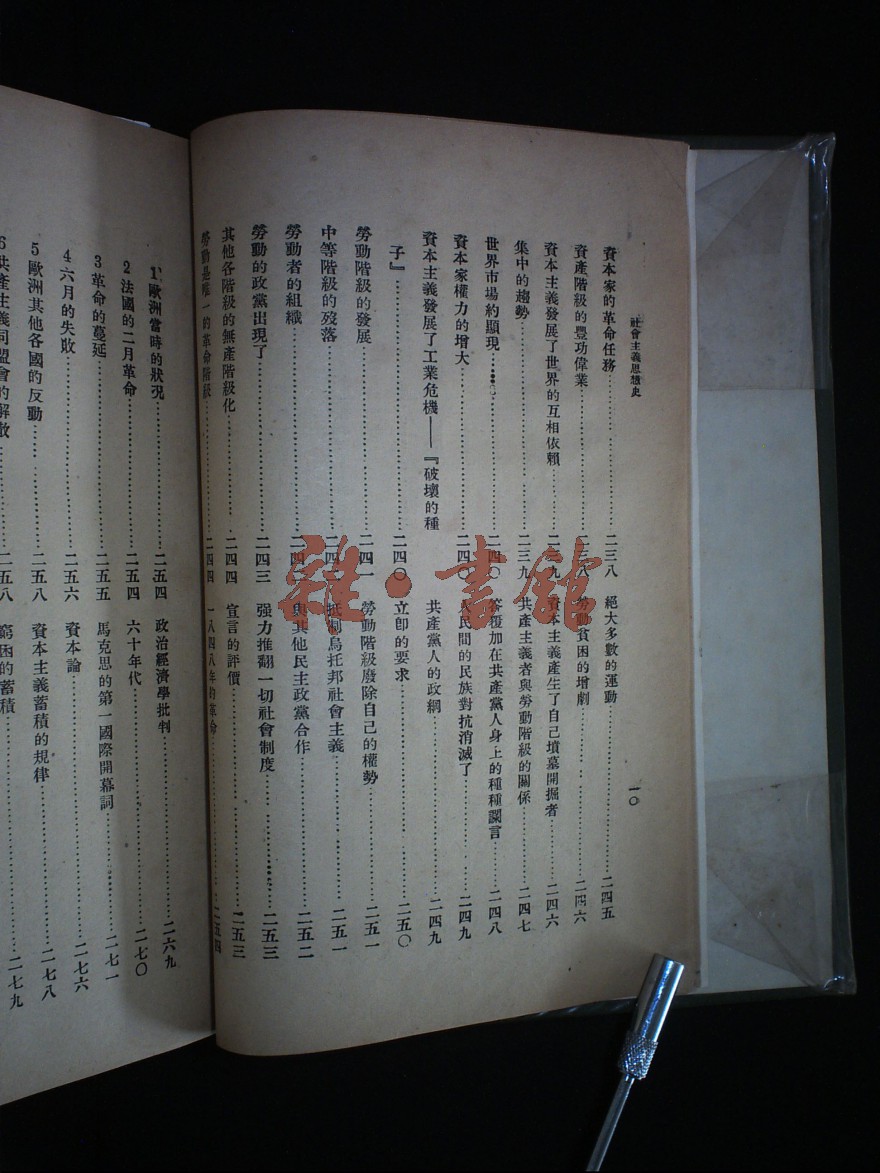 社會主義思想史
一〇
資本家的革命任務……二三八
資產階級的豐功偉業……二三八
資本主義發展了世界的互相依賴……二三九
集中的趨勢……二三九
世界市場約顯現……二四〇
資本家權力的增大……二四〇
資本主義發展了工業危機——『破壞的種
子』……二四〇
勞動階級的發展……二四一
中等階級的歿落
勞動者的組織
勞動的政黨出現了……二四三
其他各階級的無產階級化……二四四
勞動是唯一的革命階級……二四四
絕大多數的運動……二四五
勞動貧困的增劇……二四六
資本主義產生了自己墳墓開掘者……二四六
共產主義者與勞動階級的關係……二四七
答覆加在共產黨人身上的種種讕言……二四八
人民間的民族對抗消滅了……二四九
共產黨人的政綱……二四九
立卽的要求……二五〇
勞動階級廢除自己的權勢……二五一
抵制烏托邦社會主義……二五一
與其他民主政黨合作……二五二
强力推翻一切社會制度……二五三
宣言的評價……二五三
一八四八年的革命……二五四
1 歐洲當時的狀況……二五四
2 法國的二月革命……二五四
3 革命的蔓延……二五五
4 六月的失敗……二五六
5 歐洲其他各國的反動……二五八
6 共產主義同盟會的解散……二五八
政治經濟學批判……二六九
六十年代……二七〇
馬克思的第一國際開幕詞……二七一
資本論……二七六
資本主義蓄積的規律……二七八
窮困的蓄積……二七九
雜·書館